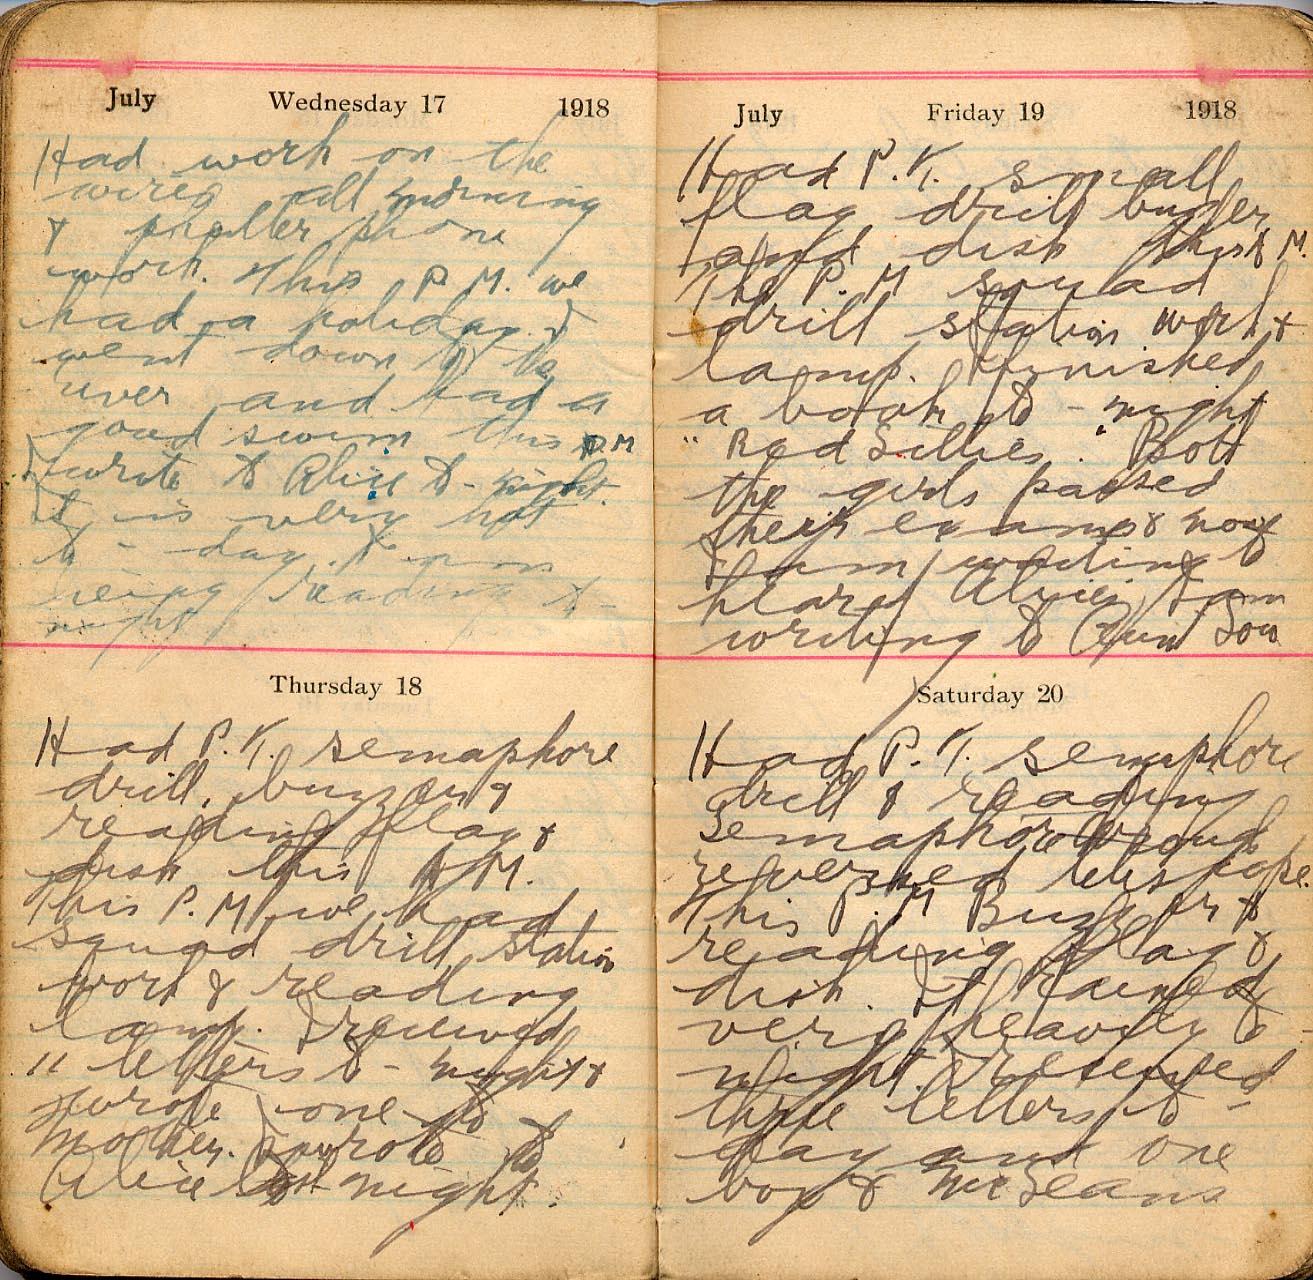 July Wednesday 17 1918
Had work on the
wires all morning
& phone
work. This P.M. we
had a holiday. I
went down to the
river and had a
good swim this P.M
I wrote to Alice to-night.
It is very hot
to-day. I am
being reading to-
night
Thursday 18
Had P.T. semaphore
drill, buzzer &
reading flag &
disk this A.M.
This P.M. we had
squad drill, station
work & reading
lamp. I received
11 letters to-night &
wrote one to
mother. I wrote to
Alice last night.
July Friday 19 1918
Had P.T. small
flag drill buzzer
and disk this A.M.
The P.M squad
drill station work &
lamp. Finished
a book to-night
"Red Lillies". Both
the girls passed
their exams & now
I am waiting to
hear Alices. I am
writing to Aunt Lou
Saturday 20
Had P.T. semaphore
drill & reading
semaphore
reversed telescope.
This P.M Buzzer &
reading flag &
disk. It rained
very heavily to
night. I received
three letters to-
day and one
box